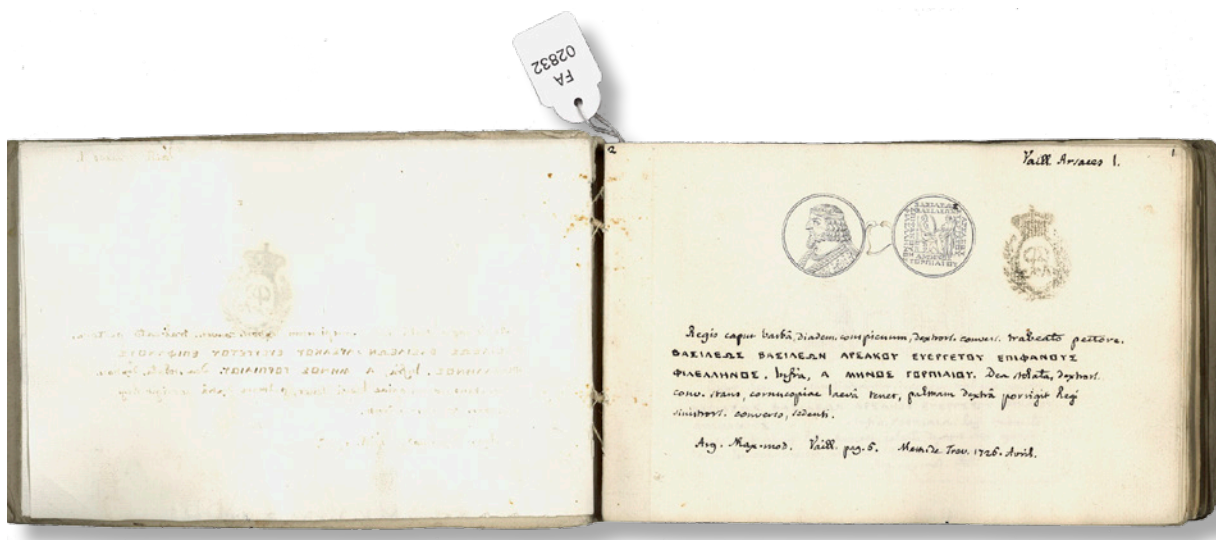 FA
02832
2
1
Vaill. Arsaces I.
ΒΑΣΙΛΕΩΣ
ΒΑΣΙΛΕΩΝ
ΓΟΡΠΙΑΙΟΥ
Regis caput barbâ, diadem. conspicuum, dextrors. convers. trabeato pectore.
ΒΑΣΙΛΕΩΣ ΒΑΣΙΛΕΩΝ ΑΡΣΑΚΟΥ ΕΥΕΡΓΕΤΟΥ ΕΠΙΦΑΝΟΥΣ
ΦΙΛΕΛΛΗΝΟΣ. Infra, Α ΜΗΝΟΣ ΓΟΡΠΙΑΙΟΥ. Dea stolata, dextrors.
conv. stans, cornucopiae laevâ tenet, palmam dextrâ porrigit Regi
sinistrors. converso, sedenti.
Arg. Max. mod. Vaill. pag. 6. Mem. de Trev. 1726. Avril.